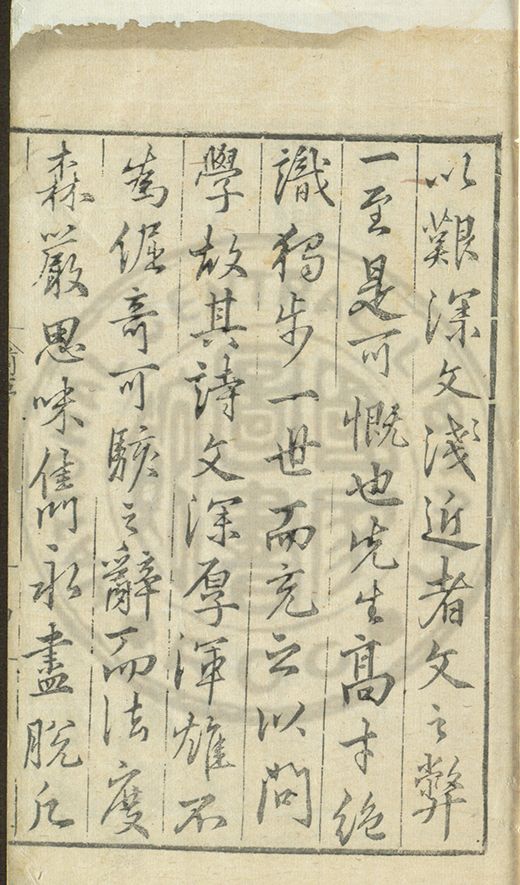 以艱深文淺近者文之弊
一至是可慨也先生高才絶
識獨步一世而充之以問
學故其詩文深厚渾雄不
為倔奇可駭之辭而法度
森嚴思味雋永盡脫凡